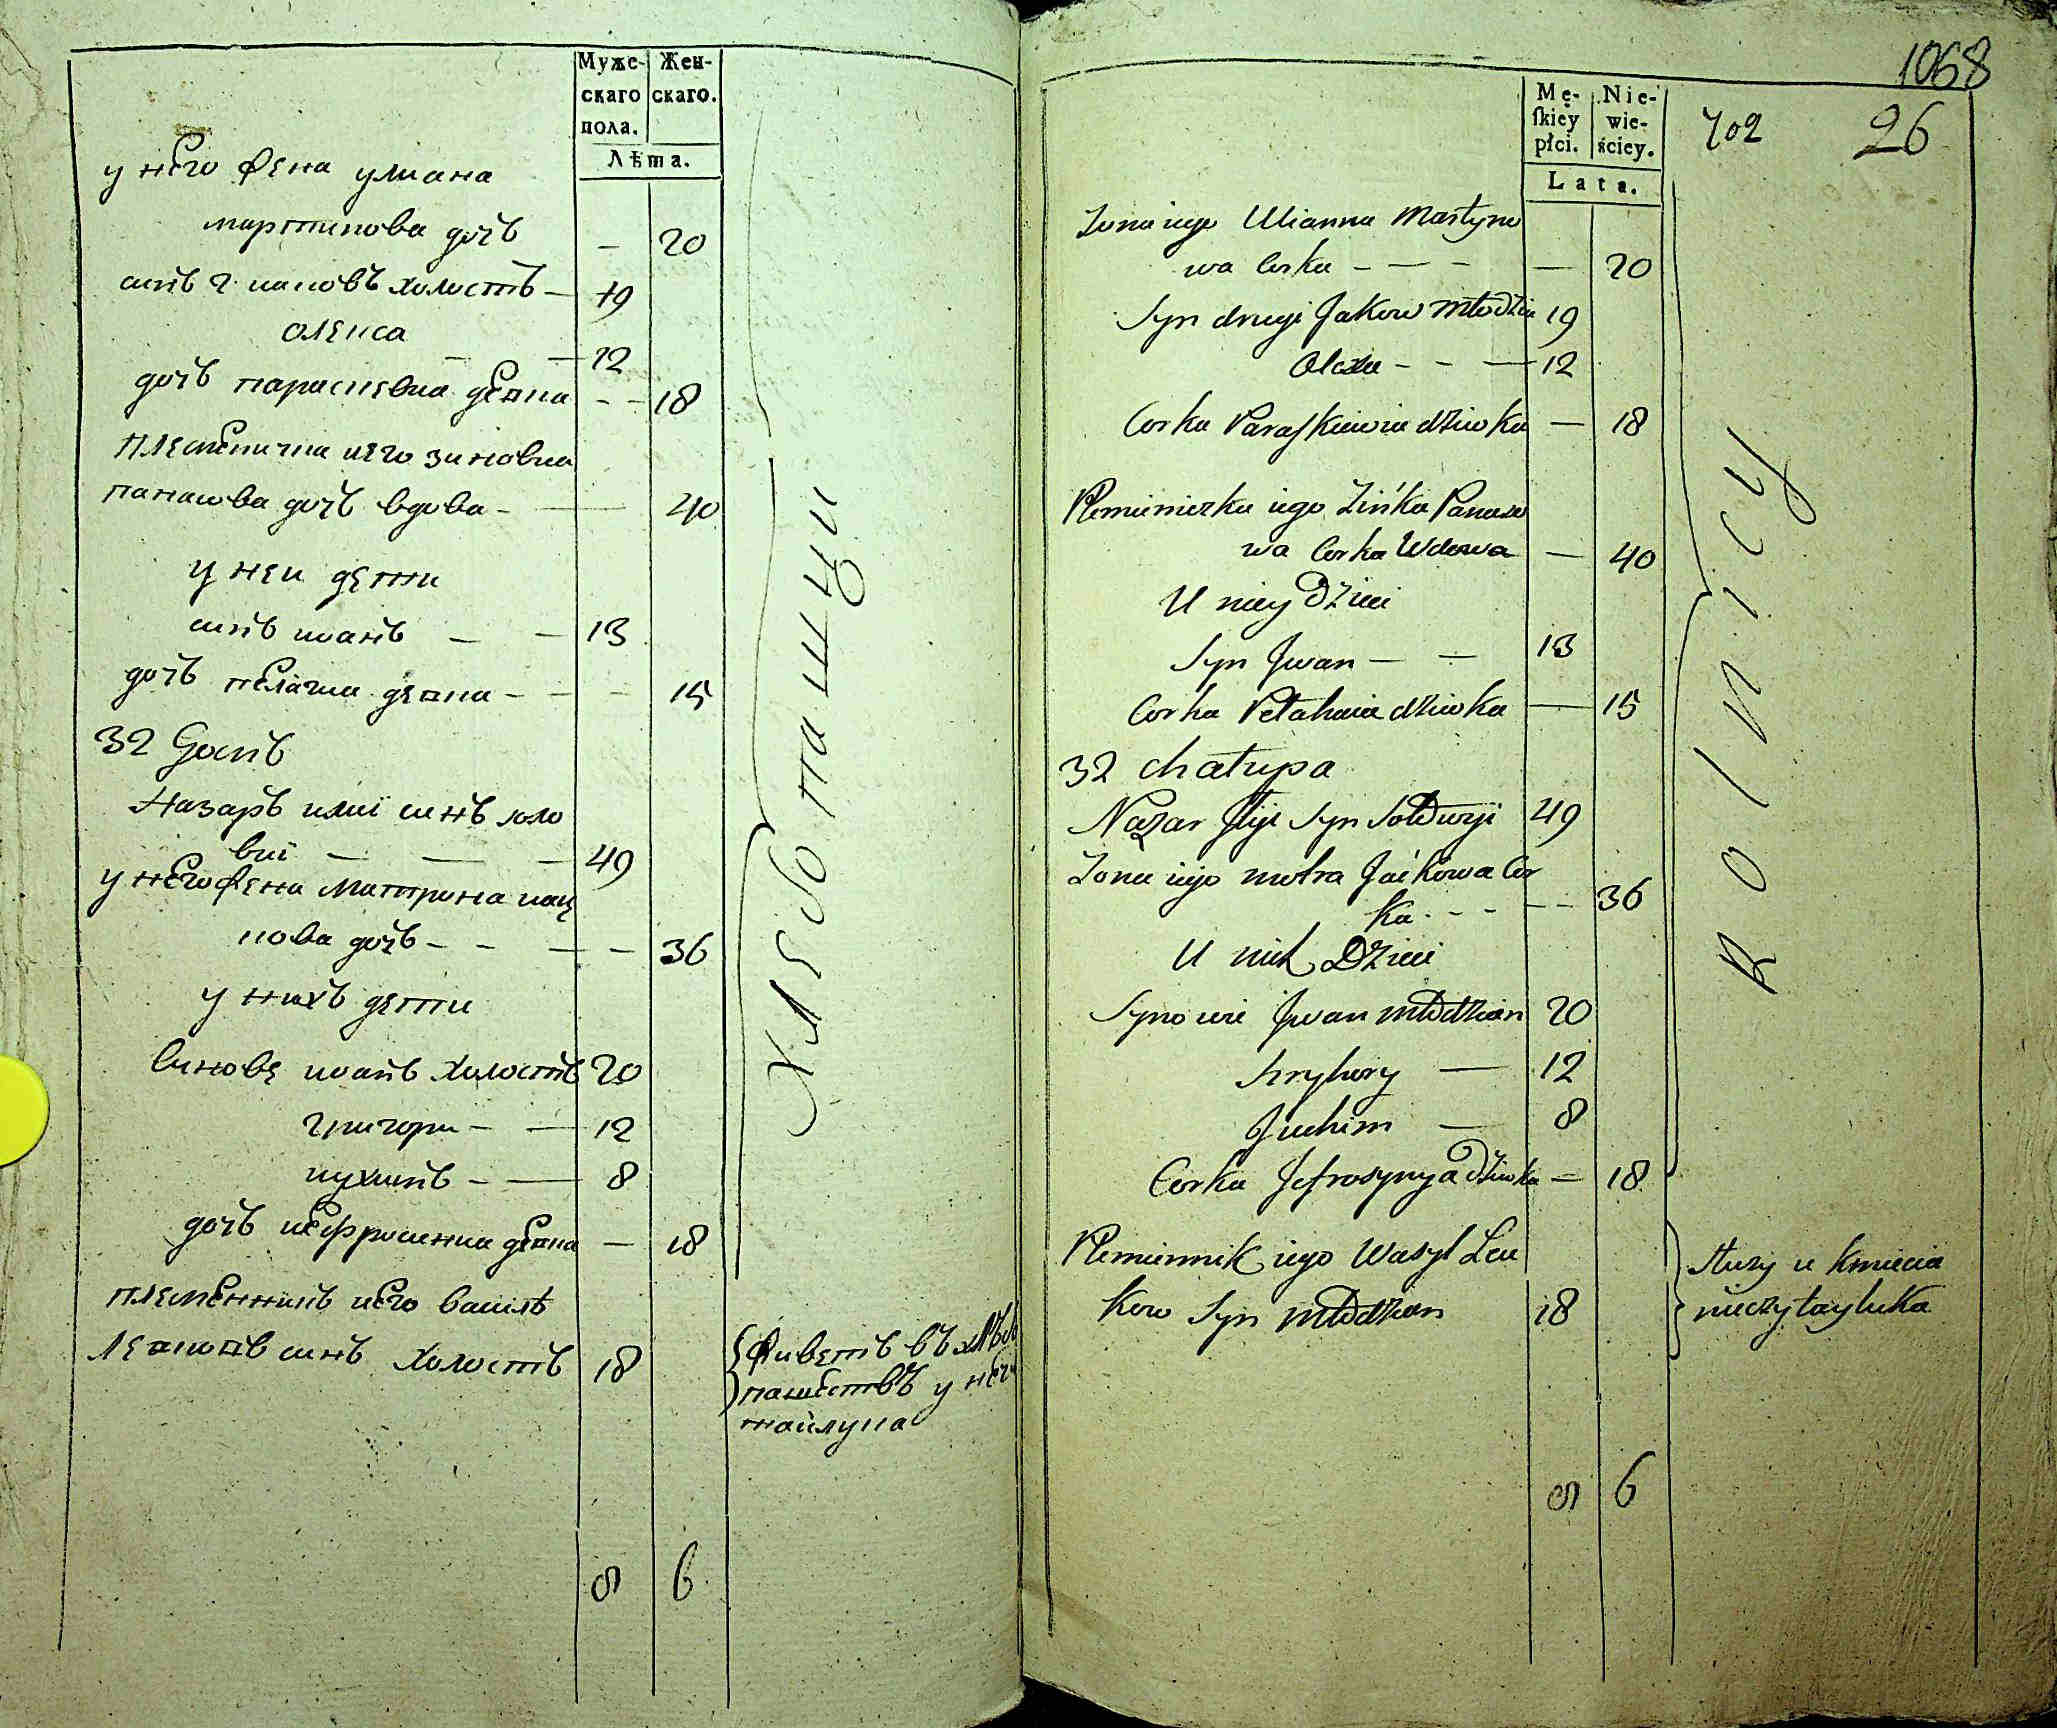 Муже-
скаго
пола.
Жен-
скаго.
Лѣта.
у него жена улиана
мартинова дочъ — 20
синъ 2 иаковъ холостъ — 19
олекса — — 12
дочъ параскевиа девка — — 18
племеничка иего зиновиа
панасова дочъ вдова — — 40
у неи дети
синъ иванъ — — 13
дочъ пелагиа девка — — — 15
32 Домъ
Назаръ илиі синъ золо
виі — — — 49
у него жена матрона иац
кова дочъ — — — — 36
у нихъ дети
Синове иванъ холостъ 20
григори — — 12
иухимъ — — 8
дочъ иефросиниа девка — 18
племенникъ иего василь
левковъ синъ холостъ 18
Хлебопашци
живетъ въ хлѣбо
пашествѣ у
8 6
1068
Mę-
skiey
płci.
Nie-
wie-
ściey.
Lata.
702 26
Zona iego Ulianna Martyno
wa Corka — — — — 20
Syn drugi Jakow młodzia 19
Olexa — — — 12
Corka Paraskiewia dziwka — 18
Plemieniczka iego Zińka Panaso
wa Corka Wdowa — 40
U niey Dzieci
Syn Jwan — — 13
Corka Pelahaia dziwka — 15
32 chałupa
Nazar Jliji Syn 49
Zona iego motra Jaćkowa Cor
ka - - - — — 36
U nich Dzieci
Synowie Jwan młodzian 20
Hryhory — 12
Juchim — 8
Corka Jefrosynya Dziwka — 18
Plemiennik iego Wasyl Lew
kow Syn młodzian 18
Rolnicy
służy u kmiecia
nieczytayluka
8 6